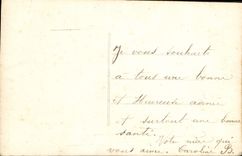 Je vous souhait
à tous une bonne
et Heureuse année
et surtout une bonne
santé
Votre mère qui
vous aime Caroline